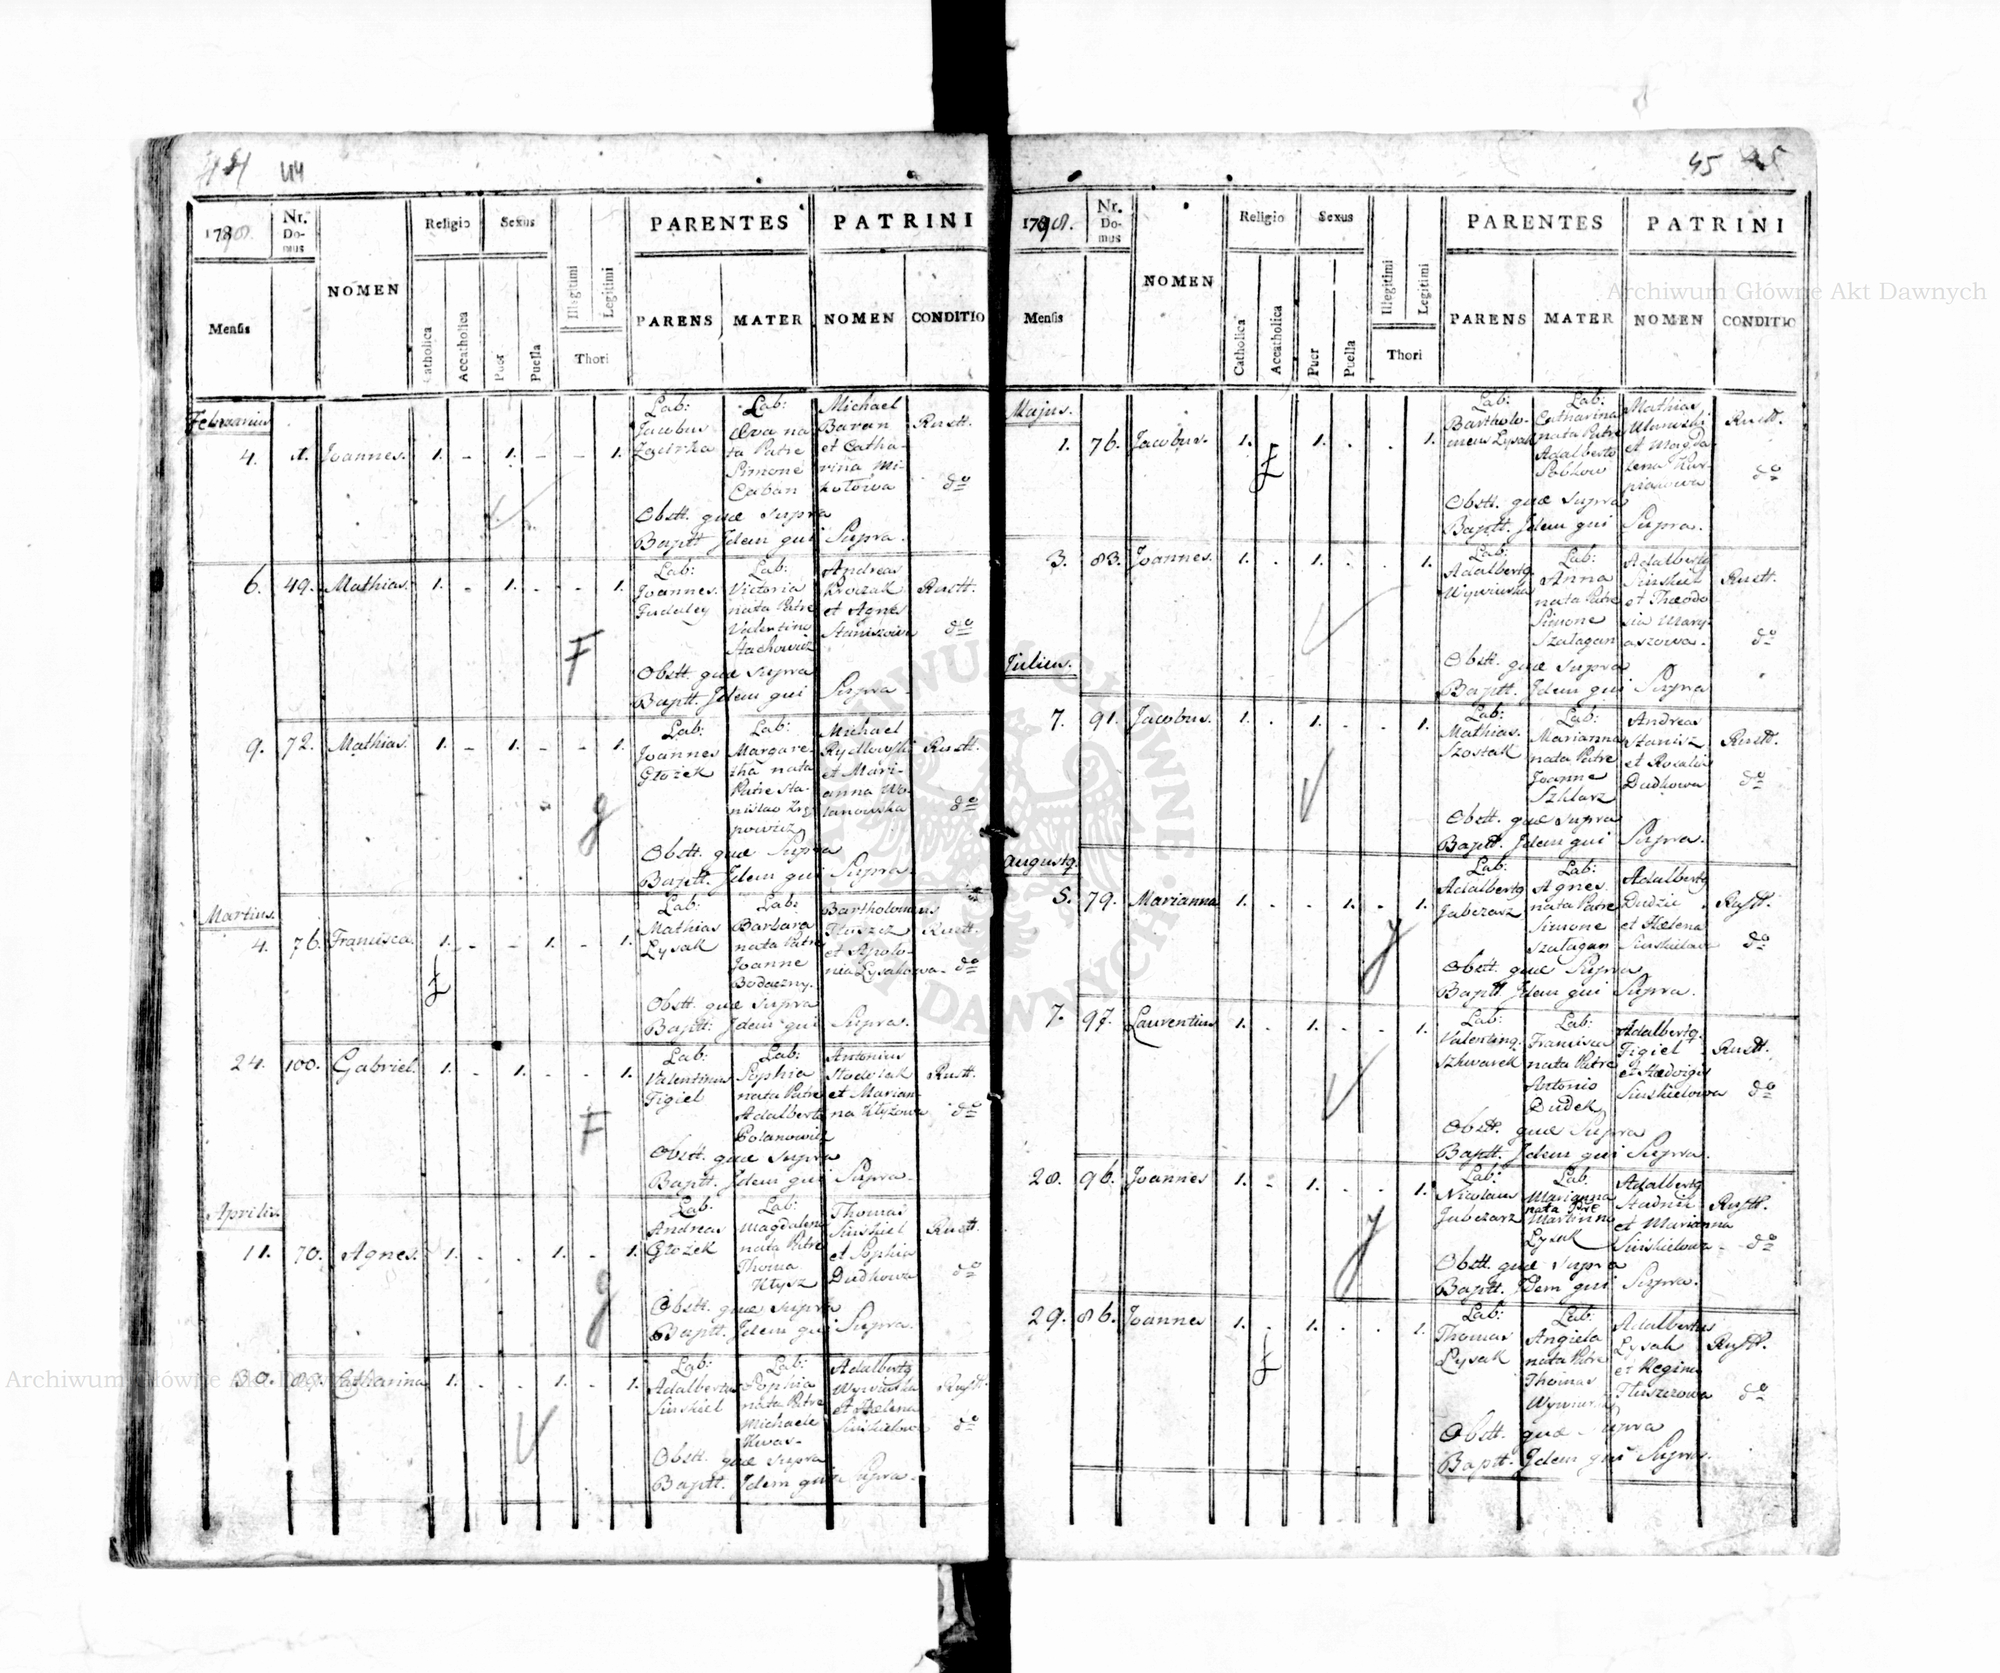 44 44
1798.
Nr. Do- mus
NOMEN
Religio
Sexus
PARENTES
PATRINI
Mensis
Catholica
Accatholica
Puer
Puella
Illegitimi
Legitimi
Thori
PARENS
MATER
NOMEN
CONDITIO
Februarius
4. Joannes. 1. - 1. - - 1.
Lab: Jacobus
Lab: Eva na
ta Patre
Simone
Caban
Michael
Baran
et Catha-
rina Mi-
kołowa
Rustt.
do
Obstt. quæ supra
Baptt. Idem qui Supra.
6. 49. Mathias. 1. - 1. - - 1.
Lab:
Joannes
Fudaley
Lab:
Victoria
nata Patre
Valentino
Stachowicz
Andreas
et Agnes
Staniszowa
Rustt.
do
Obstt. quæ supra
Baptt. Idem qui Supra
9. 72. Mathias. 1. - 1. - - 1.
Lab:
Joannes
Głożek
Lab:
Margare-
tha nata
Patre Sta-
nislao
Michael
Rydlowski
et Mari-
anna Wo-
lanowska
Rustt.
do
Obstt. quæ Supra
Baptt. Idem qui Supra.
Martius.
4. 76. Francisca. 1. - - 1. - 1.
Lab:
Mathias
Lysak
Lab:
Barbara
nata Patre
Joanne
Bodaczny.
Bartholomeus
Tłuszcz
et Apolo-
nia Lysakowa.
Rustt.
do
Obstt. quæ supra
Baptt: Idem qui Supra.
24. 100. Gabriel. 1. - 1. - - 1.
Lab:
Valentinus
Figiel
Lab:
Sophia
nata Patre
Adalberto
Antonius
et Marian-
na Kłyżowa
Rustt.
do
Obstt. quæ supra
Baptt. Idem qui Supra.
Aprilis
11. 70. Agnes. 1. - - 1. - 1.
Lab:
Andreas
Głożek
Lab:
Magdalena
nata Patre
Thoma
Kłysz
Thomas
Siuskiel
et Sophia
Dudkowa
Rustt.
do
Obstt. quæ supra
Baptt. Idem qui Supra.
30. 89. Catharina 1. - - 1. - 1.
Lab:
Adalbertus
Siuskiel
Lab:
Sophia
nata Patre
Michaele
Kwas-
Adalbertg
Wywiurka
et Hælena
Siuskielowa
Rustt.
do
Obstt. quæ supra
Baptt. Idem qui Supra.
45 45
1798.
Nr. Do- mus
NOMEN
Religio
Sexus
PARENTES
PATRINI
Mensis
Catholica
Accatholica
Puer
Puella
Illegitimi
Legitimi
Thori
PARENS
MATER
NOMEN
CONDITIO
Majus.
1. 76. Jacobus. 1. 1. . . 1.
Lab:
Bartholo-
meus Lysak
Lab:
Catharina
nata Patre
Adalberto
Mathias
et Magda-
lena
Rustt.
do
Obstt. quæ supra
Baptt. Idem qui Supra.
3. 83. Joannes. 1. . 1. . . 1.
Lab:
Adalbertg
Wywiurka
Lab:
Anna
nata Patre
Simone
Szalagan
Adalbertg
Siuskiel
et Theodo-
sia Mary-
aszowa.
Rustt.
do
Obstt. quæ supra
Baptt. Idem qui Supra
Julius.
7. 91. Jacobus. 1. . 1. . . 1.
Lab:
Mathias
Szostak
Lab:
Marianna
nata Patre
Joanne
Szklarz
Andreas
Stanisz
et Rosalia
Dudkowa
Rustt.
do
Obstt. quæ supra
Baptt. Idem qui Supra.
Augustg.
5. 79. Marianna 1. . . 1. . 1.
Lab:
Adalbertg
Jabczarz
Lab:
Agnes
nata Patre
Simone
Szalagan
Adalbertg
Dudzic
et Hælena
Siuskielowa
Rustt.
do
Obstt. quæ Supra
Baptt Idem qui Supra.
7. 97. Laurentius 1. . 1. . . 1.
Lab:
Valenting.
Szkwarek
Lab:
Francisca
nata Patre
Antonio
Dudek
Adalbertg.
Figiel
et Hedvigis
Siuskielowa
Rustt.
do
Obstt. quæ Supra
Baptt. Idem qui Supra.
28. 96. Joannes 1. - 1. . . 1.
Lab:
Nicolaus
Jabczarz
Lab.
Marianna
nata Pre
Martino
Lysak
Adalbertg
et Marianna
Siuskielowa
Rustt.
do
Obstt. quæ supra
Baptt. Idem qui Supra.
29. 86. Joannes 1. . 1. . . 1.
Lab:
Thomas
Lysak
Lab:
Angiela
nata Patre
Thomas
Adalbertus
Lysak
et Regina
Tłuszczowa
Rustt.
do
Obstt. quæ supra
Baptt. Idem qui Supra.
Archiwum Główne Akt Dawnych
Archiwum Główne Akt Dawnych